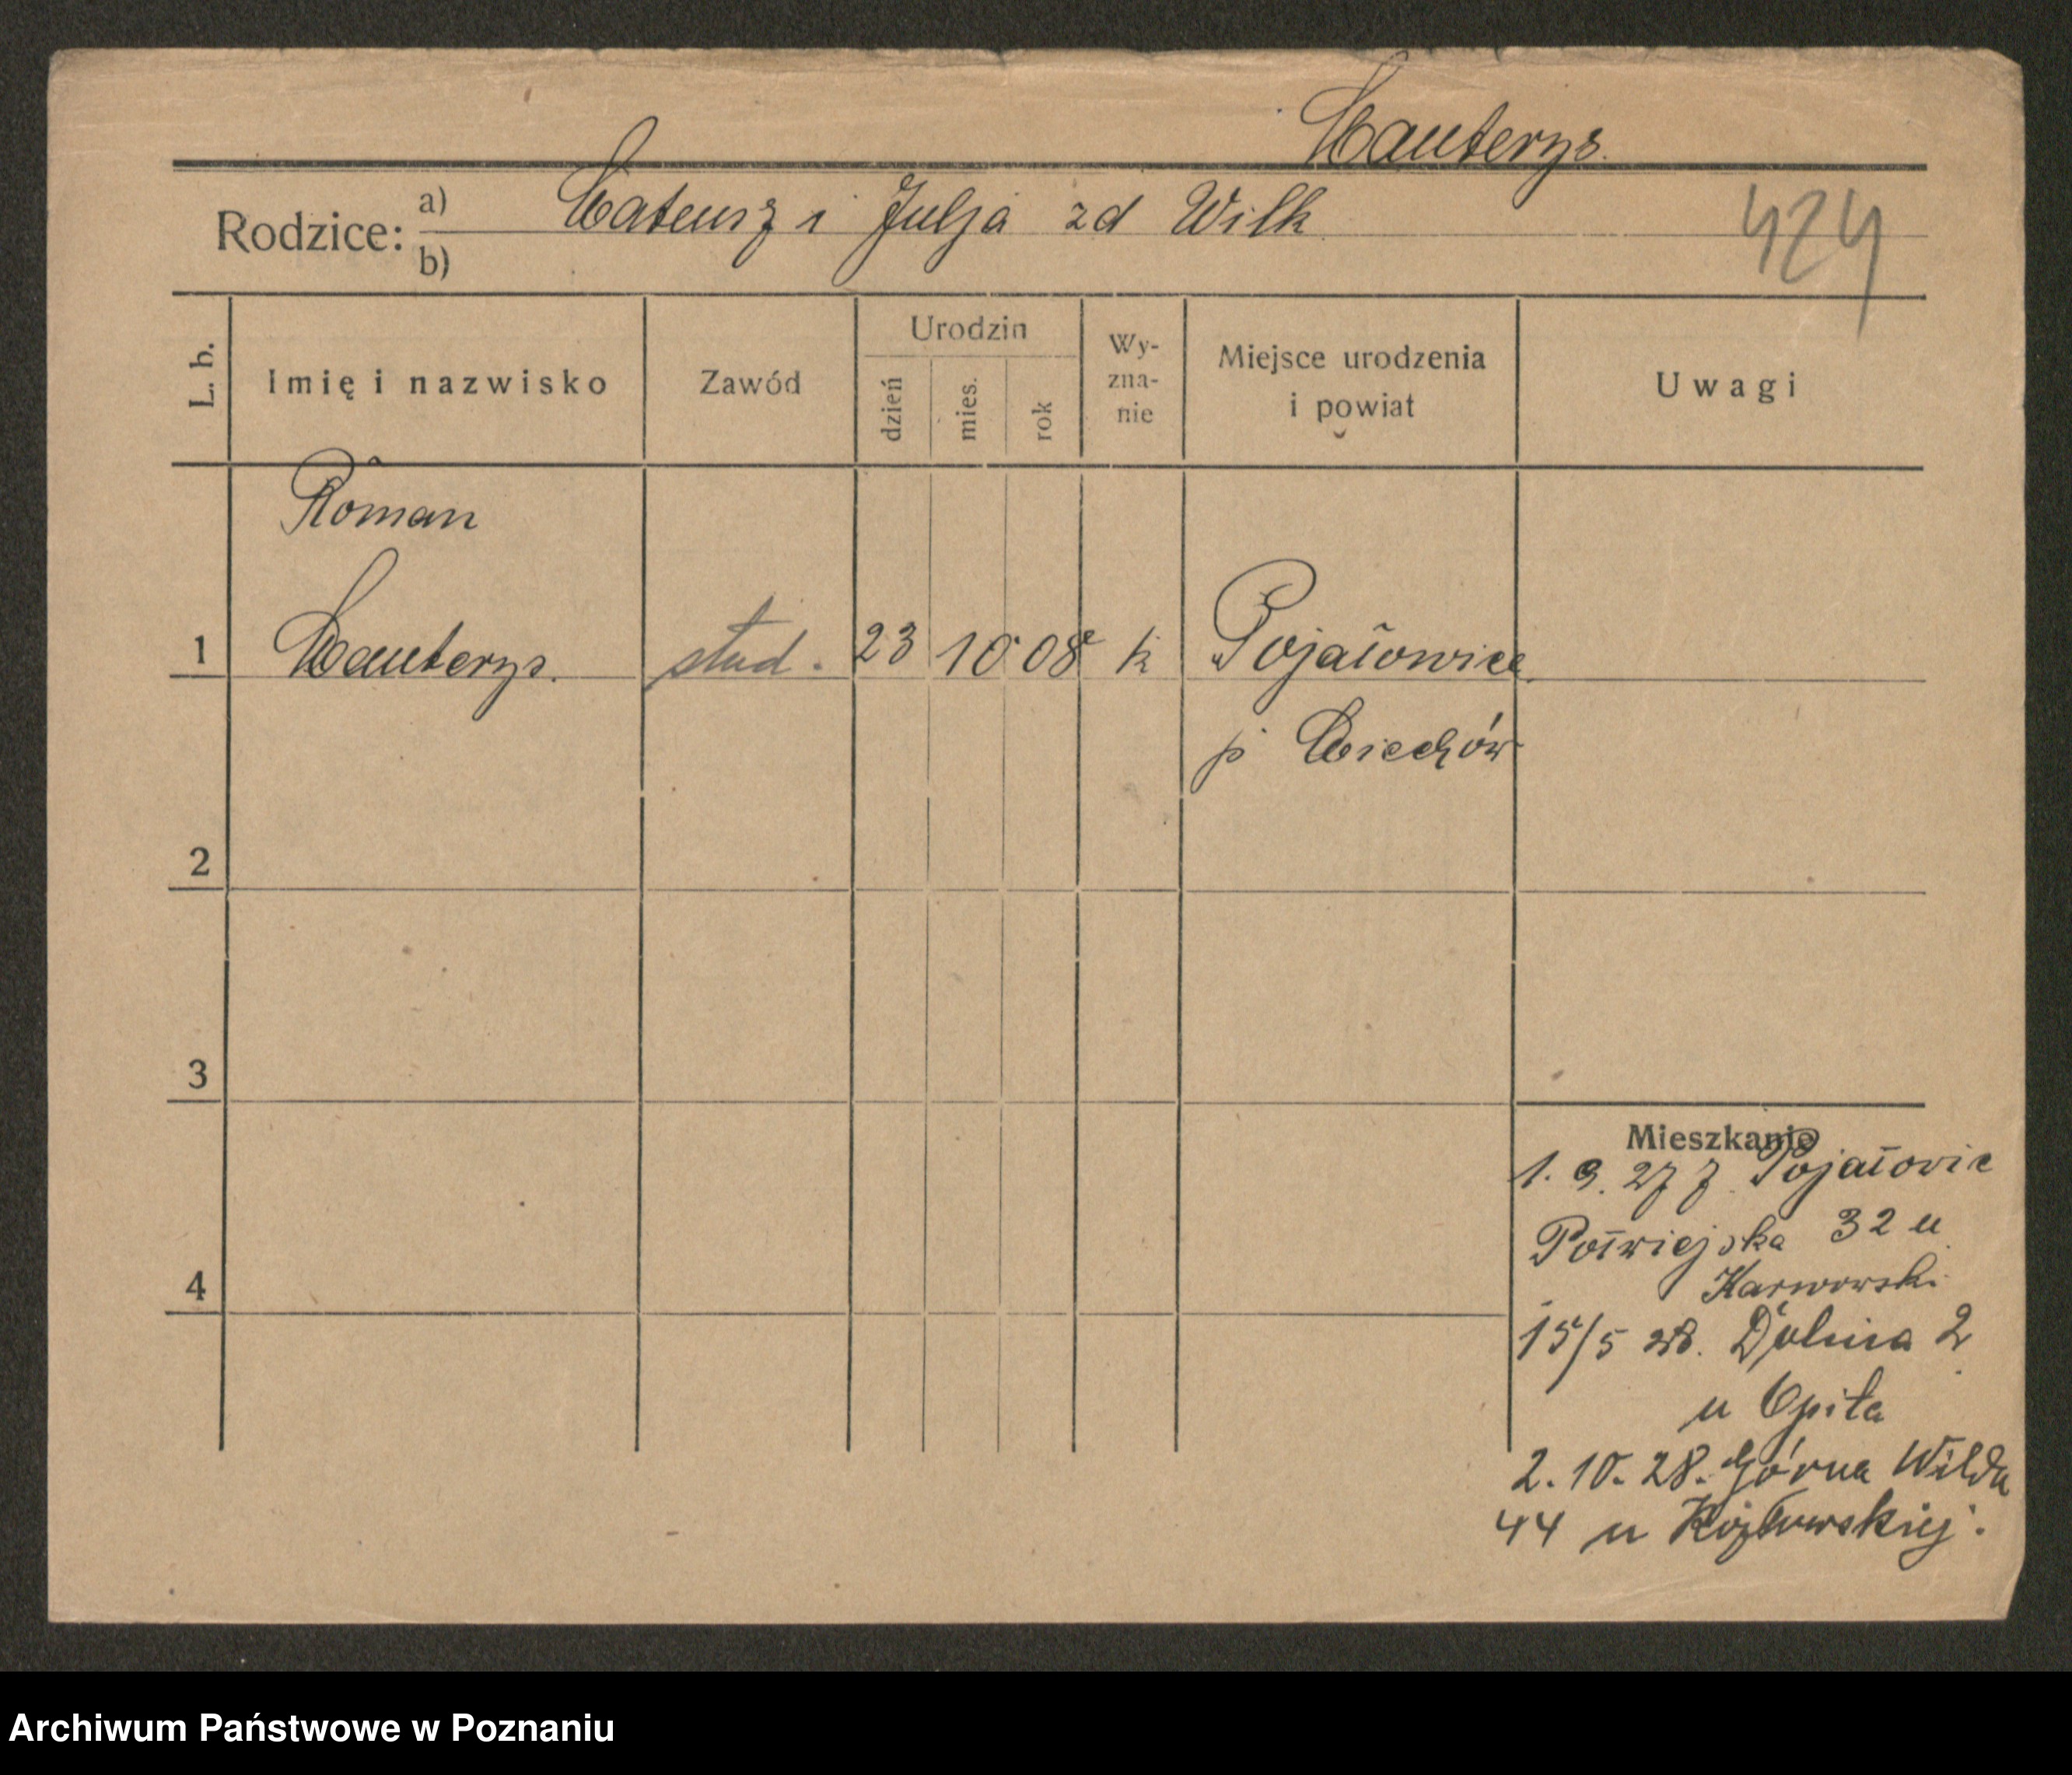 Mauterys.
Rodzice: a) Mateusz i Julja zd Wilk
b)
424
L. b.
Imię i nazwisko
Zawód
Urodzin
dzień
mies.
rok
Wy-
zna-
nie
Miejsce urodzenia
i powiat
Uwagi
Roman
1 Mauterys. stud. 23 10 08 k Pojałowice
p Miechów
2
3
4
Mieszkanie
1. 9. 27 z Pojałowic
Półwiejska 32 u
Karwowski
15/5 28. Dolina 2
u Opiła
2. 10. 28. Górna Wilda
44 u Kozłowskiej.
Archiwum Państwowe w Poznaniu